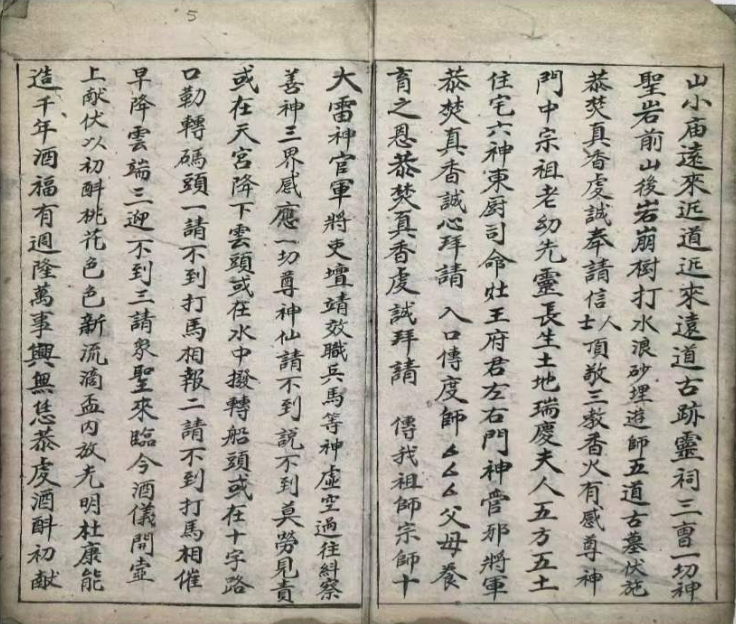 山小庙遠來近道近來遠道古跡靈祠三曹一切神
聖岩前山後岩崩樹打水浪砂埋遊師五道古墓伏施
恭焚真香虔誠奉請信士人頂敬三教香火有感尊神
門中宗祖老幼先靈長生土地瑞慶夫人五方五土
住宅六神東厨司命灶王府君左右門神管邪將軍
恭焚真香誠心拜請 入口傳度師厶厶厶父母養
育之恩恭焚真香虔誠拜請 傳我祖師宗師十
大雷神官軍將吏壇靖效職兵馬等神虛空過往糾察
善神三界感應一切尊神仙請不到説不到莫勞見責
或在天宮降下雲頭或在水中撥轉船頭或在十字路
口勒轉碼頭一請不到打馬相報二請不到打馬相催
早降雲端三迎不到三請象聖來臨今酒儀開壺
上献伏以初酙桃花色色新流滴盃内放光明杜康能
造千年酒福有週隆萬事興無恁恭虔酒酙初献
5